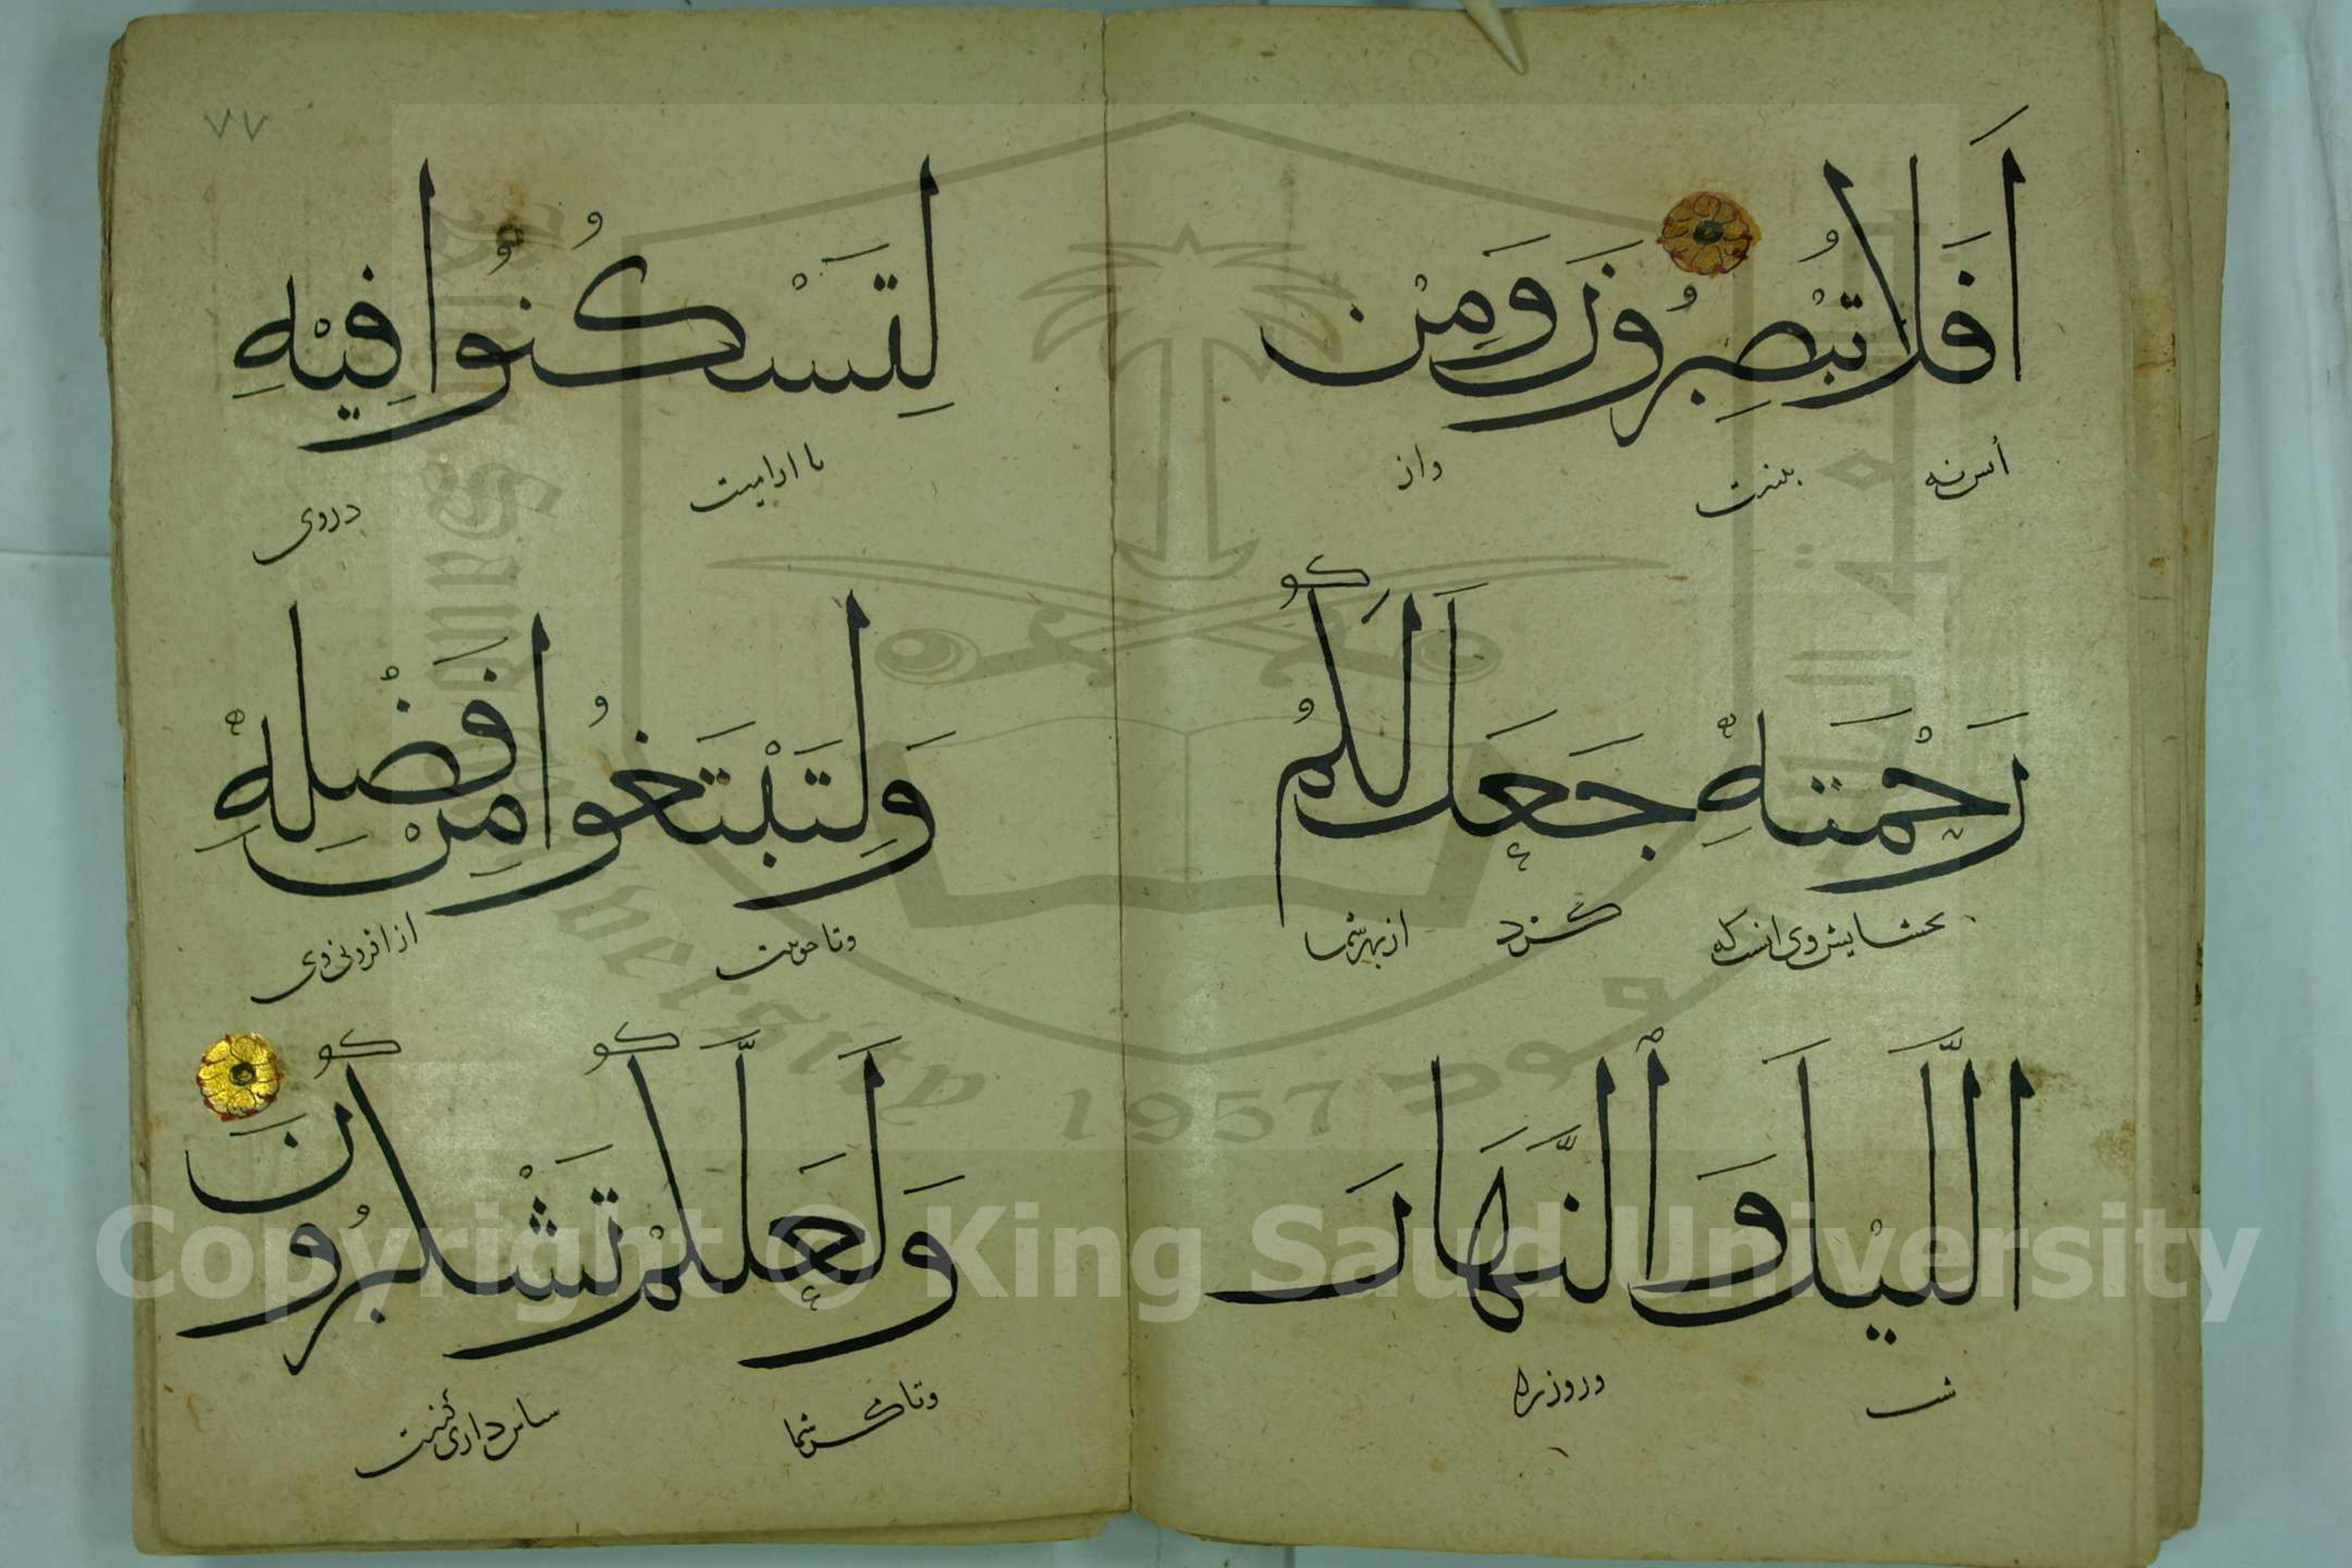 اَفَلَا تُبْصِرُونَ وَمِنْ
واز
رَحْمَتِهٖ جَعَلَ لَكُمُ
بخشایش وی انست که کرد از بهر شما
الَّيْلَ وَالنَّهَارَ
شب وروز را
٧٧
لِتَسْكُنُوا فِيْهِ
تا ارامیت در وی
وَلِتَبْتَغُوا مِنْ فَضْلِهٖ
وتا جویت از افزونی وی
وَلَعَلَّكُمْ تَشْكُرُونَ
وتا مگر شما سپاس داری کنیت
Copyright © King Saud University
1957